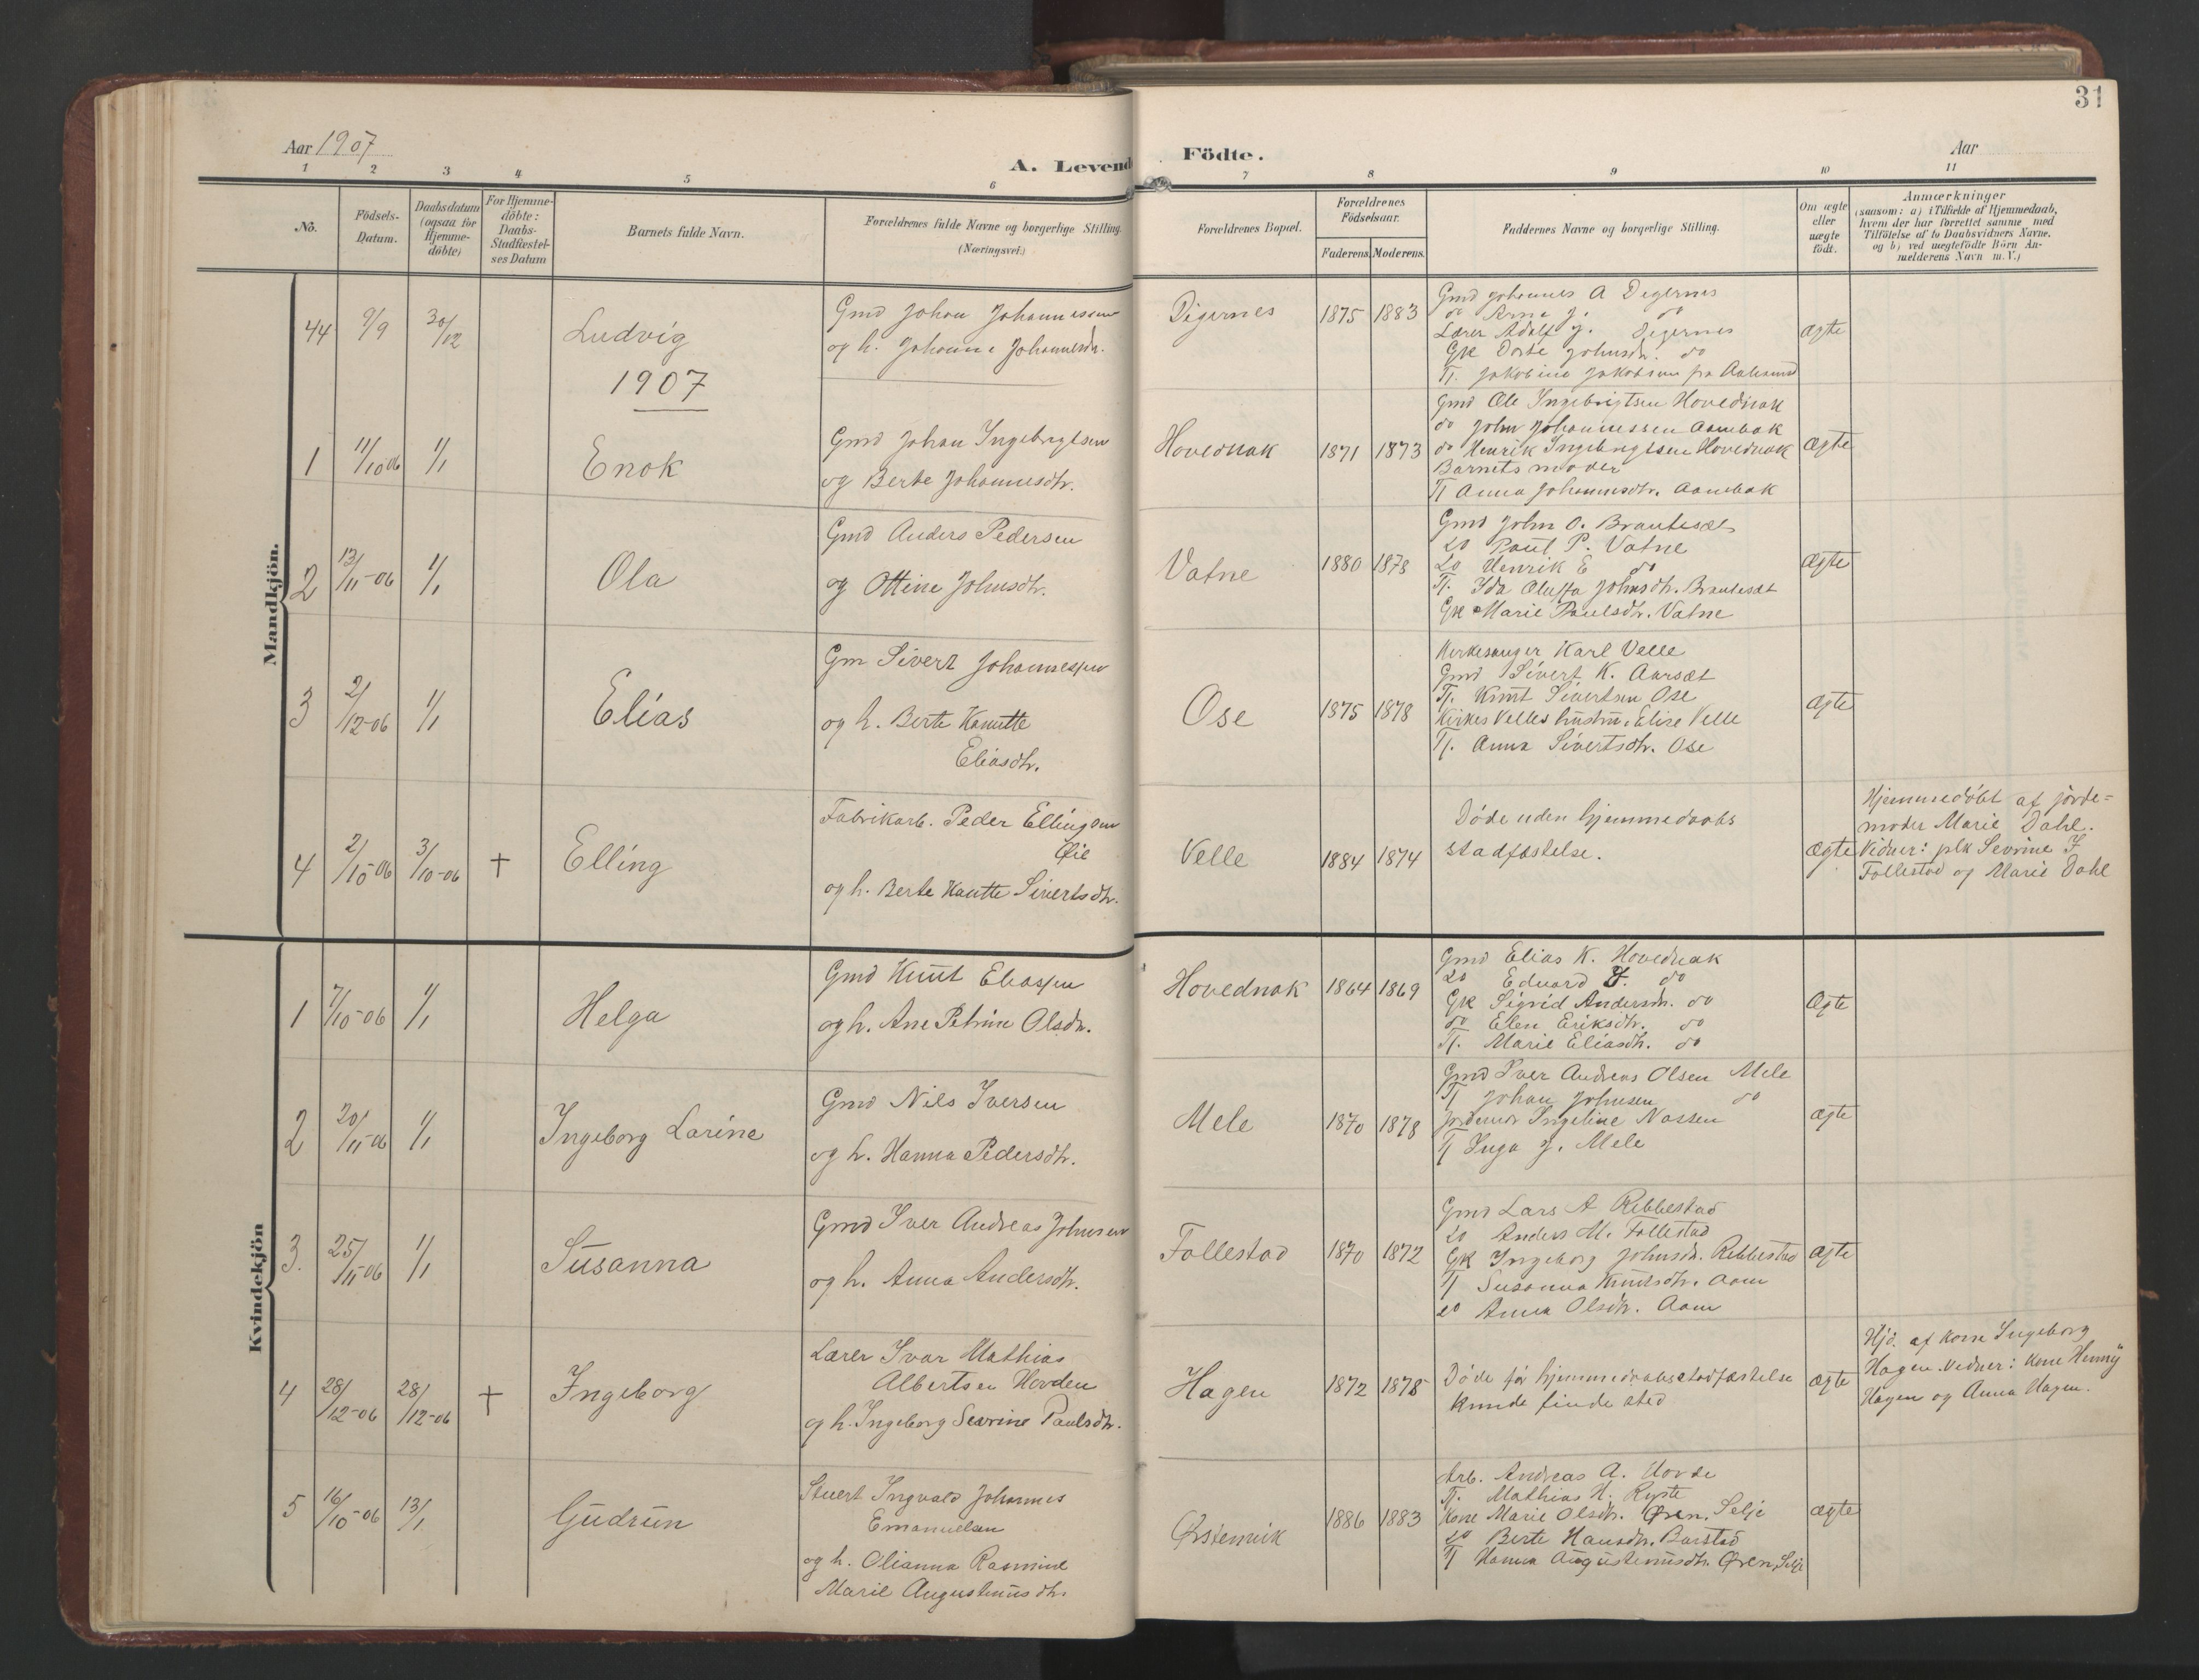 31
Aar 1907
A. Levende Födte.
Aar
1 2 3 4 5 6 7 8 9 10 11
No.
Födsels-
Datum.
Daabsdatum
(ogsaa for
Hjemme-
döbte)
For Hjemme-
döbte:
Daabs-
Stadfæstel-
ses Datum
Barnets fulde Navn.
Forældrenes fulde Navne og borgerlige Stilling.
(Næringsvei.)
Forældrenes Bopæl.
Forældrenes
Födselsaar.
Faderens. Moderens.
Faddernes Navne og borgerlige Stilling.
Om ægte
eller
uægte
födt.
Anmærkninger
(saasom: a) i Tilfælde af Hjemmedaab,
hvem der har forrettet samme med
Tilföielse af to Daabsvidners Navne,
og b) ved uægtefödte Börn An-
melderens Navn m. V.)
Mandkjön.
44 9/9 30/12 Ludvig
Gmd Johan Johannessen
og h. Johanne Johannesdr.
Digernes 1875 1883
Gmd Johannes A Digernes
do Arne J. do
Lærer Adolf J. Digernes
Gk Dorte Johnsdr. do
Tj. Jakobine Jakobsen fra Aalesund
ægte
1907
1 11/10 06 1/1 Enok
Gmd Johan Ingebrigtsen
og Berte Johannesdtr.
Hovednak 1871 1873
Gmd Ole Ingebrigtsen Hovednak
do John Johannessen Aambak
do Henrik Ingebrigtsen Hovednak
Barnets moder
Tj Anna Johannesdtr. Aambak
ægte
2 13/11-06 1/1 Ola
Gmd Anders Pedersen
og Ottine Johnsdtr.
Vatne 1880 1878
Gmd John O. Brautesæt
do Paul P. Vatne
do Henrik E do
Tj. Ida Oluffa Johnsdtr. Brautesæt
Gk Marie Paulsdtr. Vatne
ægte
3 2/12-06 1/1 Elias
Gm Sivert Johannessen
og h. Berte Kanutte
Eliasdtr.
Ose 1875 1878
Kirkesanger Karl Velle
Gmd Sivert K. Aarsæt
Tj. Knut Sivertsen Ose
Kirkes Velles hustru, Elise Velle
Tj. Anna Sivertsdtr. Ose
ægte
4 2/10-06 3/10-06 † Elling
Fabrikarb. Peder Ellingsen
Øie
og h. Berte Knutte Sivertsdtr.
Velle 1884 1874
Døde uden hjemmedaabs
stadfæstelse.
ægte
Hjemmedøbt af jorde=
moder Marie Dahl.
Vidner: plk Sevrine J
Follestad og Marie Dahl
Kvindekjön
1 7/10-06 1/1 Helga
Gmd Knut Eliassen
og h. Ane Petrine Olsdr.
Hovednak 1864 1869
Gmd Elias K. Hovednak
do Eduard do
Gk Sigrid Andersdr. do
do Elen Eriksdtr. do
Tj. Marie Eliasdtr. do
ægte
2 20/11-06 1/1 Ingeborg Larine
Gmd Nils Iversen
og h. Hanna Pedersdtr.
Mele 1870 1878
Gmd Iver Andreas Olsen Mele
Tj Johan Johnsen do
Jordemor Ingeline Nassen
Tj Inga J. Mele
ægte
3. 25/11-06 1/1 Susanna
Gmd Iver Andreas Johnsen
og h. Anna Andersdtr.
Follestad 1870 1872
Gmd Lars A Ribbestad
do Anders M. Follestad
Gk Ingeborg Johnsd. Ribbestad
Tj Susanna Knutsdtr. Aam
do Anna Olsdtr. Aam
ægte
4 28/12-06 28/12-06 † Ingeborg
Lærer Ivar Mathias
Albertsen Hovden
og h. Ingeborg Sevrine Paulsdtr.
Hagen 1872 1878
Døde før hjemmedaabsstadfæstelse
kunde finde sted
ægte
Hjd. af kone Ingeborg
Hagen. Vidner: kone Henny
Hagen og Anna Hagen.
5 16/10-06 13/1 Gudrun
Stuert Ingvald Johannes
Emanuelsen
og h. Olianna Rasmine
Marie Augustinusdtr.
Ørstenvik 1886 1883
Arb. Andreas A. Hovde
Tj. Mathias H. Ryste
Kone Marie Olsdtr. Øren, Selje
do Berte Hansdtr. Barstad
Tj Hanna Augustinusdtr. Øren, Selje
ægte